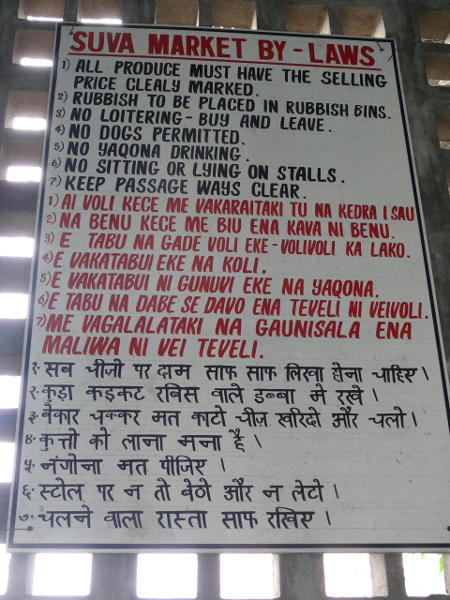 SUVA MARKET BY-LAWS
1) ALL PRODUCE MUST HAVE THE SELLING
PRICE CLEALY MARKED.
2) RUBBISH TO BE PLACED IN RUBBISH BINS.
3) NO LOITERING - BUY AND LEAVE.
4) NO DOGS PERMITTED.
5) NO YAQONA DRINKING.
6) NO SITTING OR LYING ON STALLS.
7) KEEP PASSAGE WAYS CLEAR.
1) AI VOLI KECE ME VAKARAITAKI TU NA KEDRA I SAU
2) NA BENU KECE ME BIU ENA KAVA NI BENU.
3) E TABU NA GADE VOLI EKE - VOLIVOLI KA LAKO.
4) E VAKATABUI EKE NA KOLI.
5) E VAKATABUI NI GUNUVI EKE NA YAQONA.
6) E TABU NA DABE SE DAVO ENA TEVELI NI VEIVOLI.
7) ME VAGALALATAKI NA GAUNISALA ENA
MALIWA NI VEI TEVELI.
१· सब चीजो पर दाम साफ साफ लिखा होना चाहिए।
२· कुड़ा कड़कट रबिस वाले डब्बा मे रखे।
३· बेकार चक्कर मत काटो चीज़ खरिदो और चलो।
४· कुत्तो को लाना मना है।
५· नंगोना मत पीजिए।
६· स्टोल पर न तो बेठो और न लेटो।
७· चलने वाला रास्ता साफ रखिए।